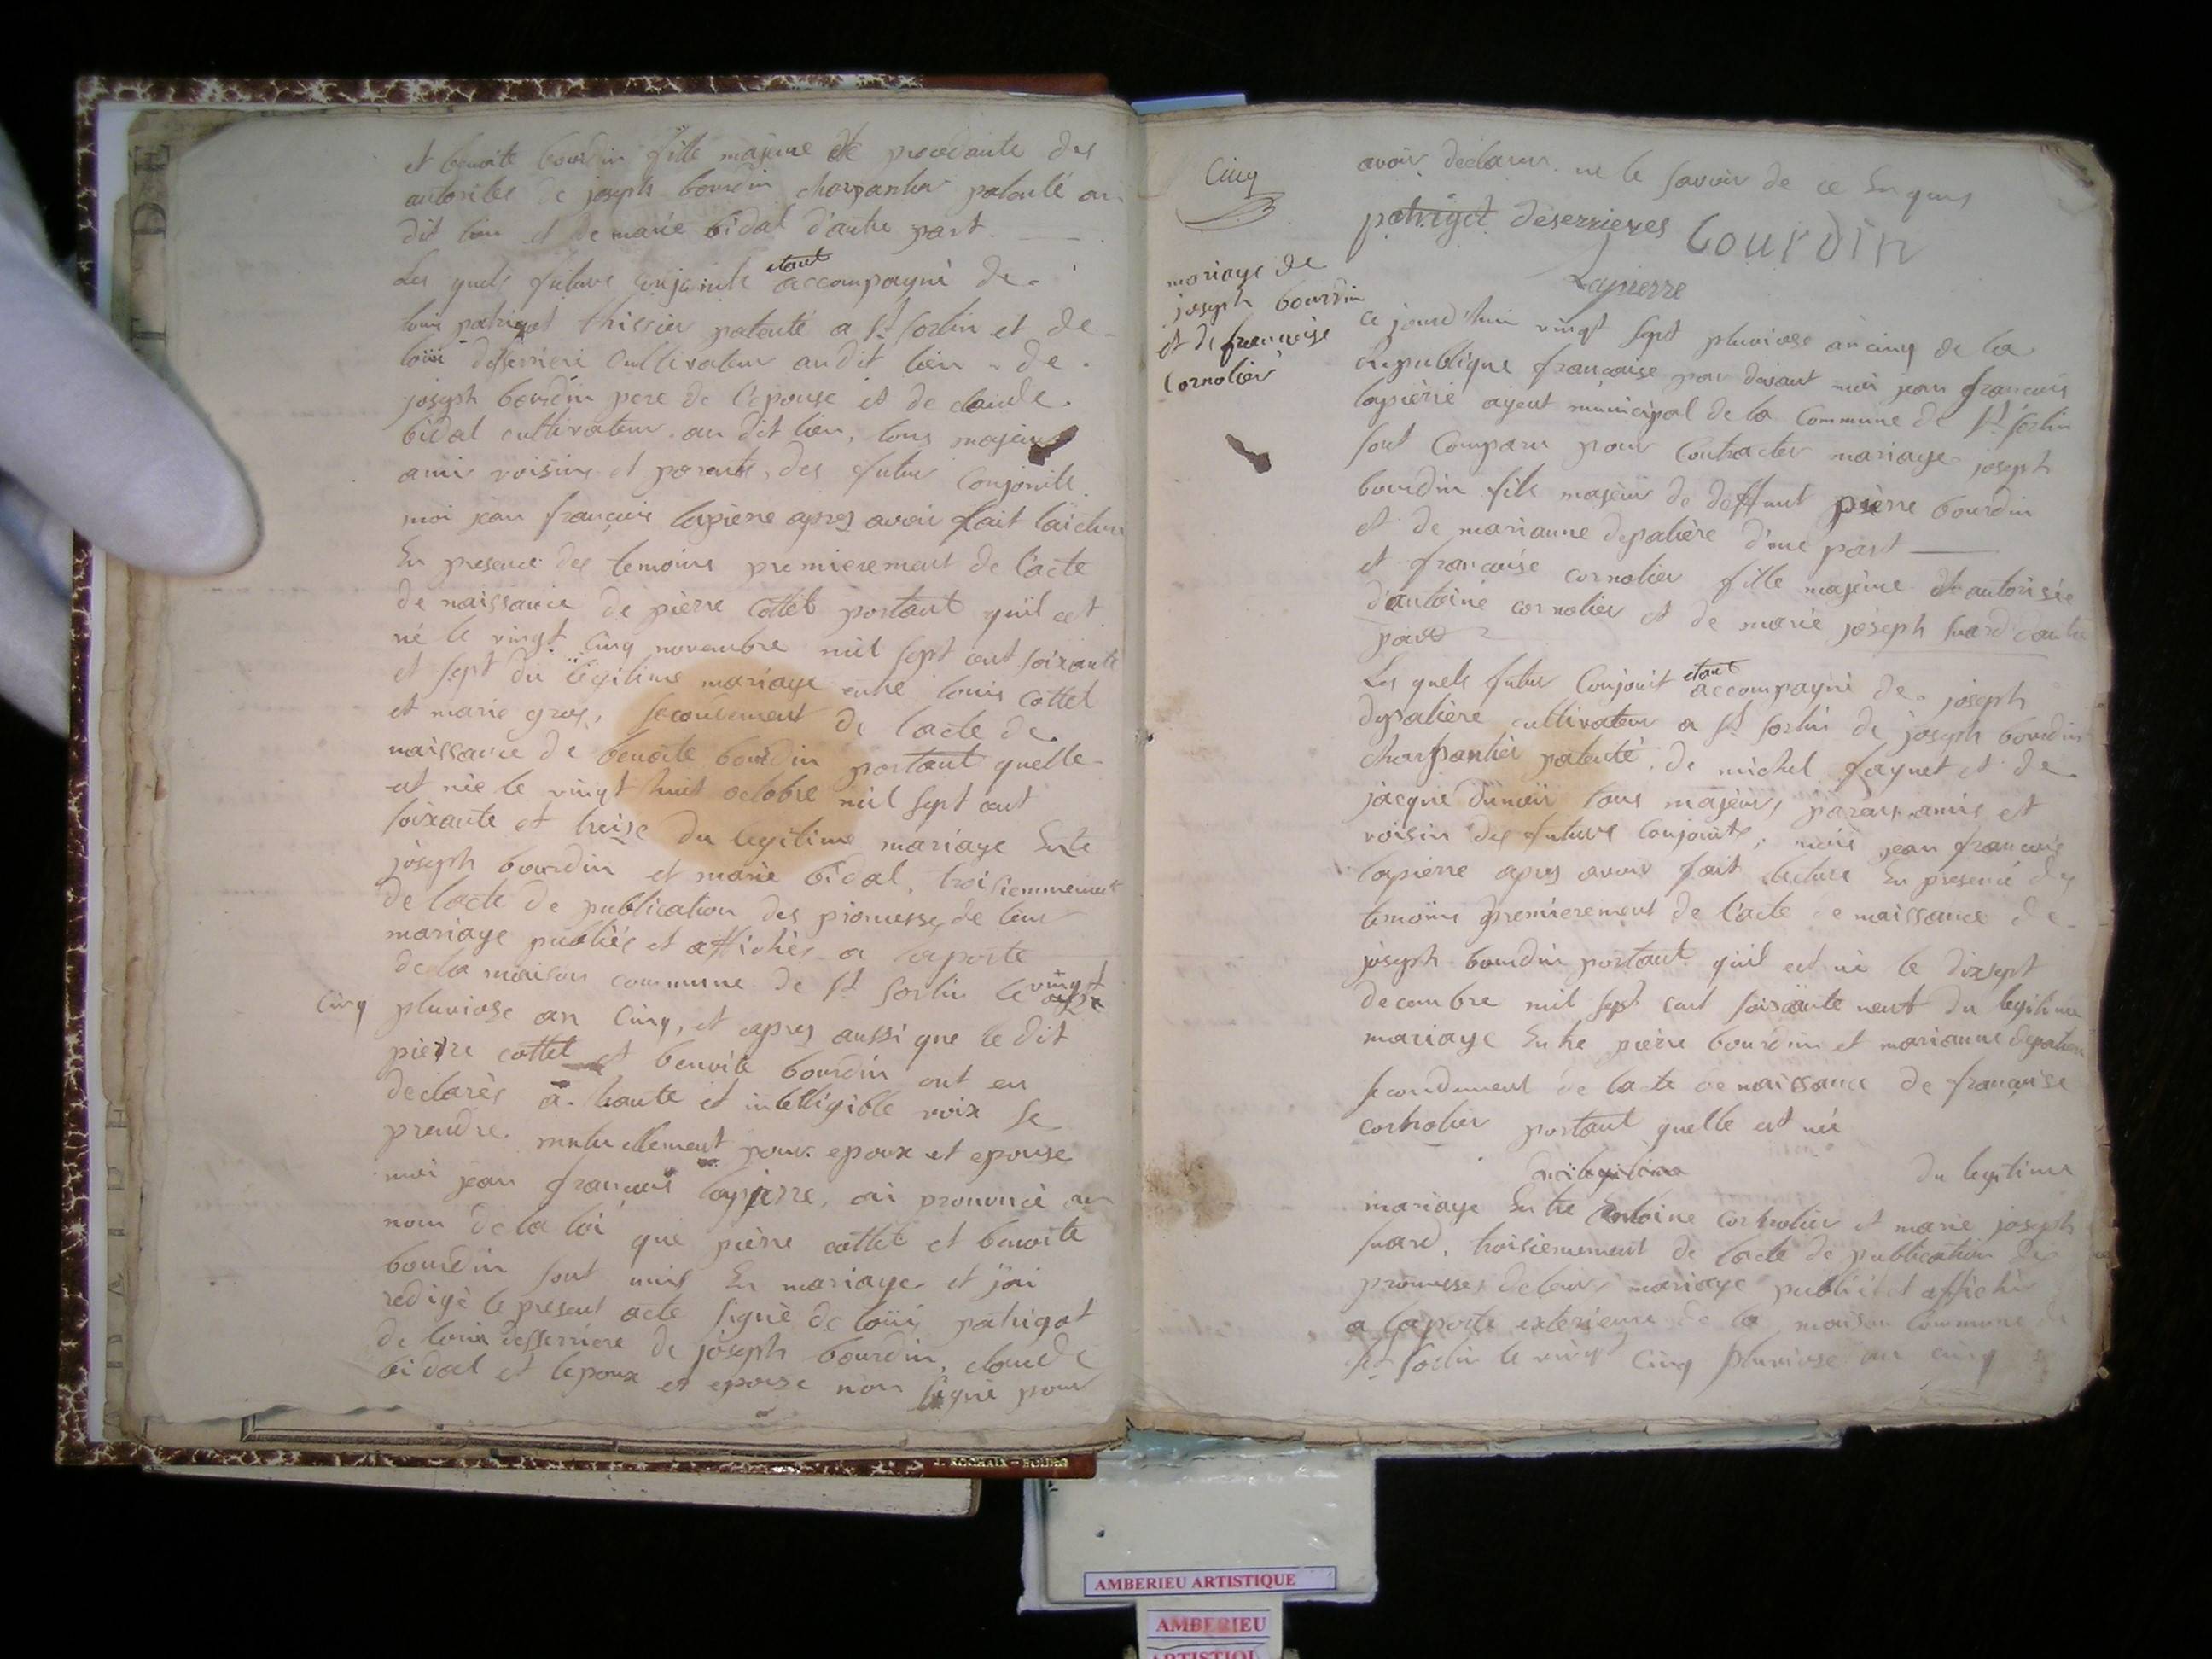 et benoite bourdin fille majeure et procedante des
autorités de joseph bourdin charpantier patanté au
dit lieu et de marie bidal d'autre part.
Les quels futurs conjoints etant accompagné de
louis patrigot thissier patanté a St Sorlin et de
loüis desserriere cultivateur au dit lieu de
joseph bourdin pere de l'epouse et de claude
bidal cultivateur au dit lieu, tous majeurs
amis voisins et parents, des futur conjoints
moi jean francois lapierre apres avoir fait lecture
En presence des temoins premierement de l'acte
de naissance de pierre cottet portant quil est
né le vingt cinq novembre mil sept cent soixante
et sept du legitime mariage entre louis cottet
et marie gros, secondement de lacte de
naissance de benoite bourdin portant quelle
est née le vingt huit octobre mil sept cent
soixante et treise du legitime mariage Entre
joseph bourdin et marie bidal, troisiemmement
de lacte de publication des promesse de leur
mariage publiés et affichés a laporte
de la maison commune de St Sorlin le vingt
cinq pluviose an cinq, et apres aussi que le dit
pierre cottet et benoite bourdin ont eu
declarés a haute et intelligible voix se
prendre mutuellement pour epoux et epouse
moi jean francois lapierre, ai prononcé au
nom de la loi que pierre cottet et benoite
bourdin sont unis En mariage et jai
redigé le present acte signé de loüis patrigot
de louis desserriere de joseph bourdin, claude
bidal et lepoux et epouse non signé pour
Cinq
avoir declarer ne le savoir de ce Enquis
patrigot deserrieres bourdin
Lapierre
mariage de
joseph bourdin
et de francoise
Cornolier
Ce jourd'hui vingt sept pluviose an cinq de la
Republique francaise par devant moi jean francois
lapierre agent municipal de la Commune de St Sorlin
sont Comparu pour Contracter mariage joseph
bourdin fils majeur de deffunt pierre bourdin
et de marianne depalière d'une part
et francoise cornolier fille majeure et autorisée
d'antoine cornolier et de marie joseph suard d'autre
part
Les quels futur Conjoint etant accompagné de joseph
depalière cultivateur a St Sorlin de joseph bourdin
charpantier patanté, de michel faquet et de
jacque tous majeurs, parens amis et
voisin des futurs Conjoints, moi jean francois
lapierre apres avoir fait lecture En presence des
temoins premierement de l'acte de naissance de
joseph bourdin portant quil est né le dixsept
decembre mil sept cent soixante neuf du legitime
mariage Entre pierre bourdin et marianne depaliere
secondement de lacte de naissance de francoise
cornolier portant quelle est née
du legitime
mariage Entre Antoine cornolier et marie joseph
suard, troisiemement de lacte de publication des
promesses de leur mariage publié et affiché
a laporte exterieure de la maison Commune de
St Sorlin le vingt Cinq pluviose an cinq
J. ROCHAIX - BOURG
AMBERIEU ARTISTIQUE
AMBERIEU
ARTISTIQUE